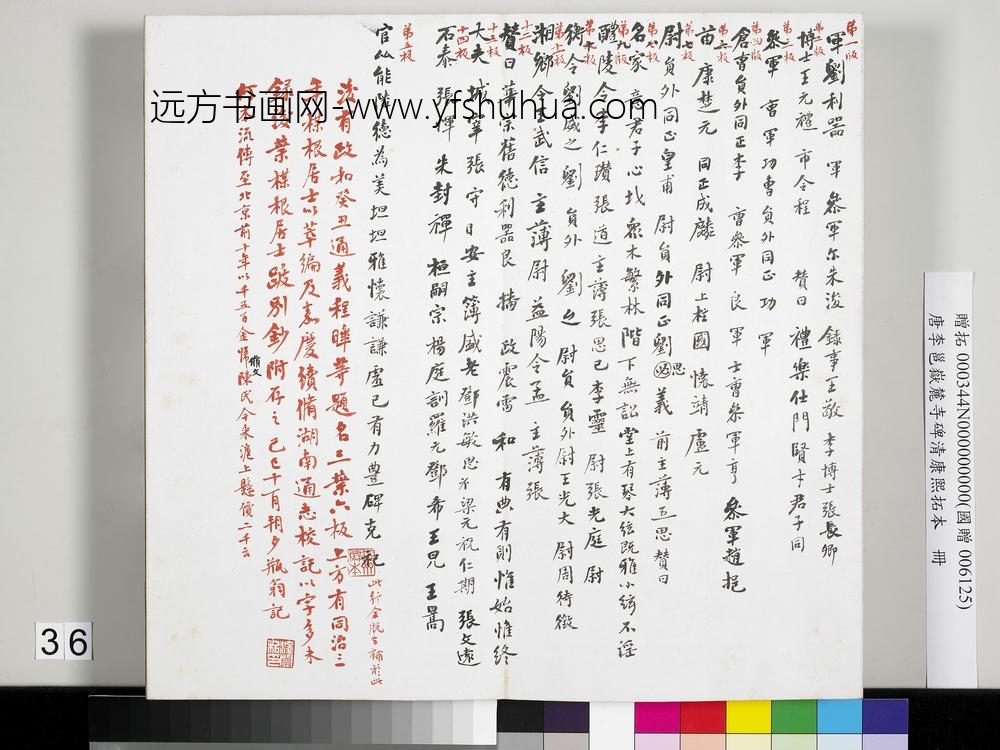 第一版
軍劉利器 軍 參軍尒朱浚 錄事王敬 李博士張長卿
第二版
博士王元禮 市令程 贊曰 禮樂仕門賢才君子同
第三版
參軍 曹軍功曹員外同正功 軍
第四版
倉曹員外同正李 曹參軍 良 軍 士曹參軍亨 參軍趙挹
第六板
苗康楚元 同正成麟 尉上柱國 懷靖盧元
第七板
尉員外同正皇甫 尉員外同正劉思義 前主薄五思贊曰
名家 君子心扑 眾木繁林 階下無訟堂上有琴大絃既雅小絃不謠
第九版
醴陵令李仁瓚張道主薄張思巳李靈 尉張光庭尉
衡令劉威之劉 員外 劉 尉員外尉王光大 尉周待徵
第十一板
湘鄉令 武信 主薄尉 益陽令孟 主薄張
十二板
贊曰 宗舊德利器良 政震雷 和 有典有則惟始惟終
十三板
大夫 城 張守日安主簿盛老鄧洪敏思 梁元祝仁期 張文遠
十四板
石泰 張暉 朱封禪 桓嗣宗楊庭訓羅元鄧希 王兄 王暠
第五板
官 能 德為美坦坦雅懷謙謙虛已有力豊碑克
此行余既 補於此
後有政和癸丑通義程暐等題名三葉六板 上方有同治三
年楳根居士以萃編及嘉慶續脩湖南通志校記以字多未
錄後葉楳根居士跋別鈔附存之己巳十月朔夕瓶翁記
本流傳至北京前十年以千五百金歸陳氏今來滬上懸價二千云
远方书画网-www.yfshuhua.com
贈拓 000344N000000000(國贈 006125)
唐李邕嶽麓寺碑清康熙拓本 冊
36